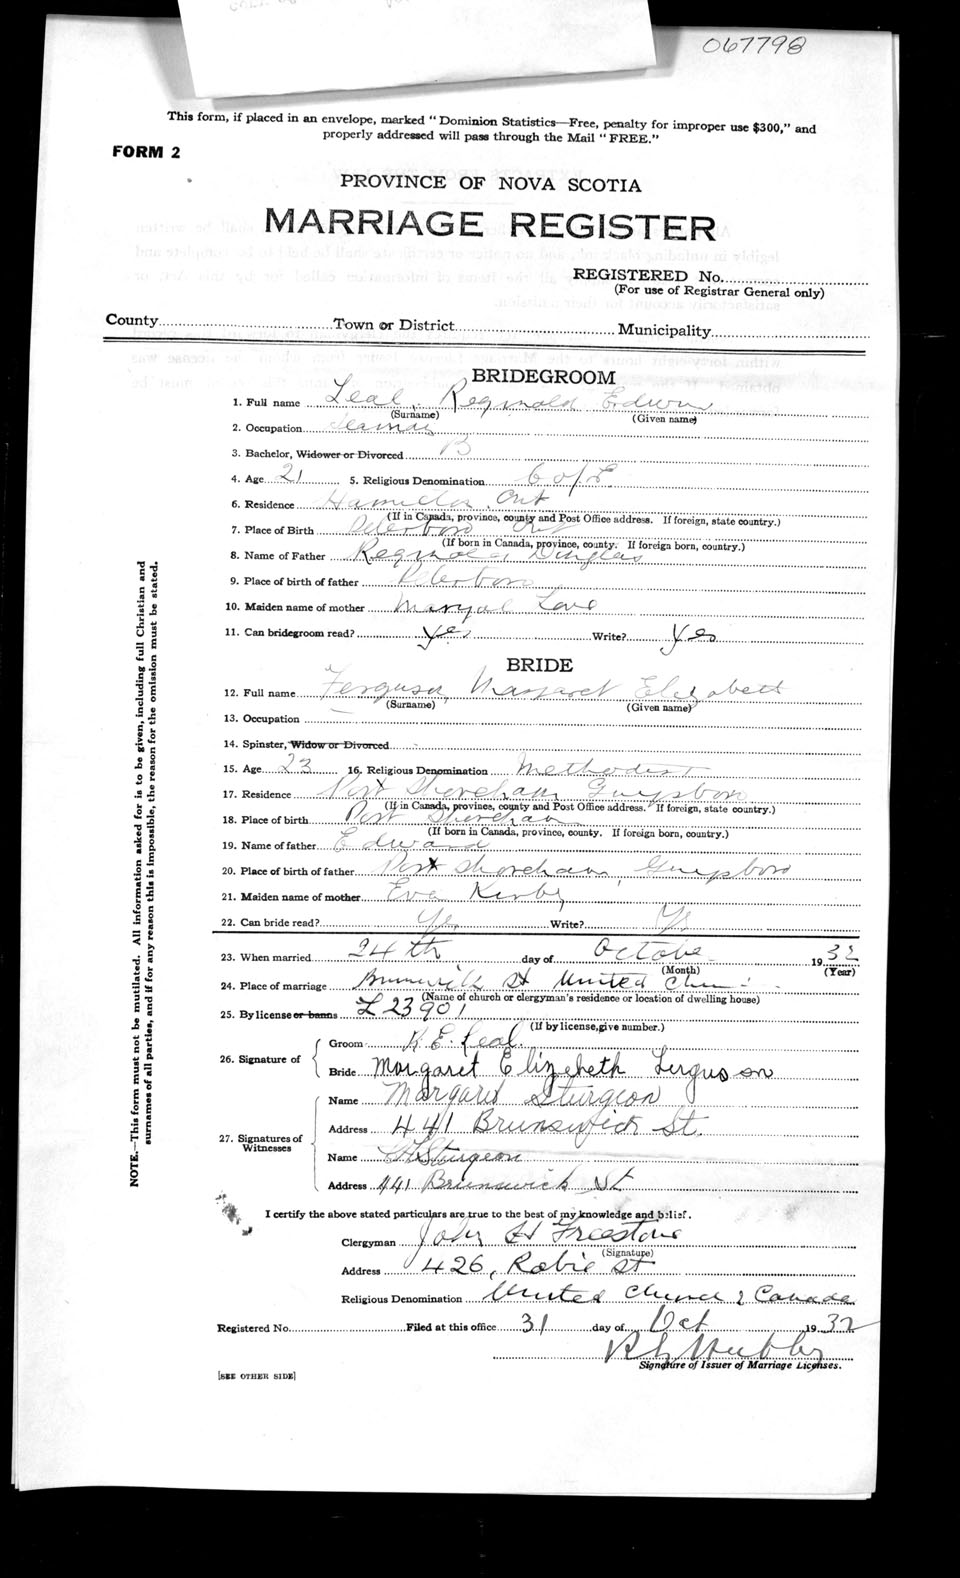 067798
This form, if placed in an envelope, marked "Dominion Statistics—Free, penalty for improper use $300," and
properly addressed will pass through the Mail "FREE."
FORM 2
PROVINCE OF NOVA SCOTIA
MARRIAGE REGISTER
REGISTERED No.
(For use of Registrar General only)
County Town or District Municipality
BRIDEGROOM
1. Full name Leal, Reginald Edwin
(Surname) (Given name)
2. Occupation Seaman
3. Bachelor, Widower or Divorced B
4. Age 21 5. Religious Denomination C of E.
6. Residence Hamilton, Ont
(If in Canada, province, county and Post Office address. If foreign, state country.)
7. Place of Birth Peterboro Ont
(If born in Canada, province, county. If foreign born, country.)
8. Name of Father Reginald Douglas
9. Place of birth of father Peterboro
10. Maiden name of mother Love
11. Can bridegroom read? yes Write? yes
BRIDE
12. Full name Ferguson, Margaret Elizabeth
(Surname) (Given name)
13. Occupation
14. Spinster, Widow or Divorced
15. Age 23 16. Religious Denomination Methodist
17. Residence Port Shoreham Guysboro
(If in Canada, province, county and Post Office address. If foreign, state country.)
18. Place of birth Port Shoreham
(If born in Canada, province, county. If foreign born, country.)
19. Name of father Edward
20. Place of birth of father Port Shoreham, Guysboro
21. Maiden name of mother Eva Kirby
22. Can bride read? Yes Write? Yes
23. When married 24th day of October 1932
(Month) (Year)
24. Place of marriage Brunswick St United
(Name of church or clergyman's residence or location of dwelling house)
25. By license or banns L 23901
(If by license, give number.)
26. Signature of
Groom R. E. Leal.
Bride Margaret Elizebeth Ferguson
27. Signatures of Witnesses
Name Margaret Sturgeon
Address 441 Brunswick St.
Name Sturgeon
Address 441 Brunswick St
I certify the above stated particulars are true to the best of my knowledge and belief.
Clergyman John H Freestone
(Signature)
Address 426, Robie St
Religious Denomination United Church of Canada
Registered No. Filed at this office 31 day of Oct 1932
Signature of Issuer of Marriage Licenses.
[SEE OTHER SIDE]
NOTE.—This form must not be mutilated. All information asked for is to be given, including full Christian and
surnames of all parties, and if for any reason this is impossible, the reason for the omission must be stated.